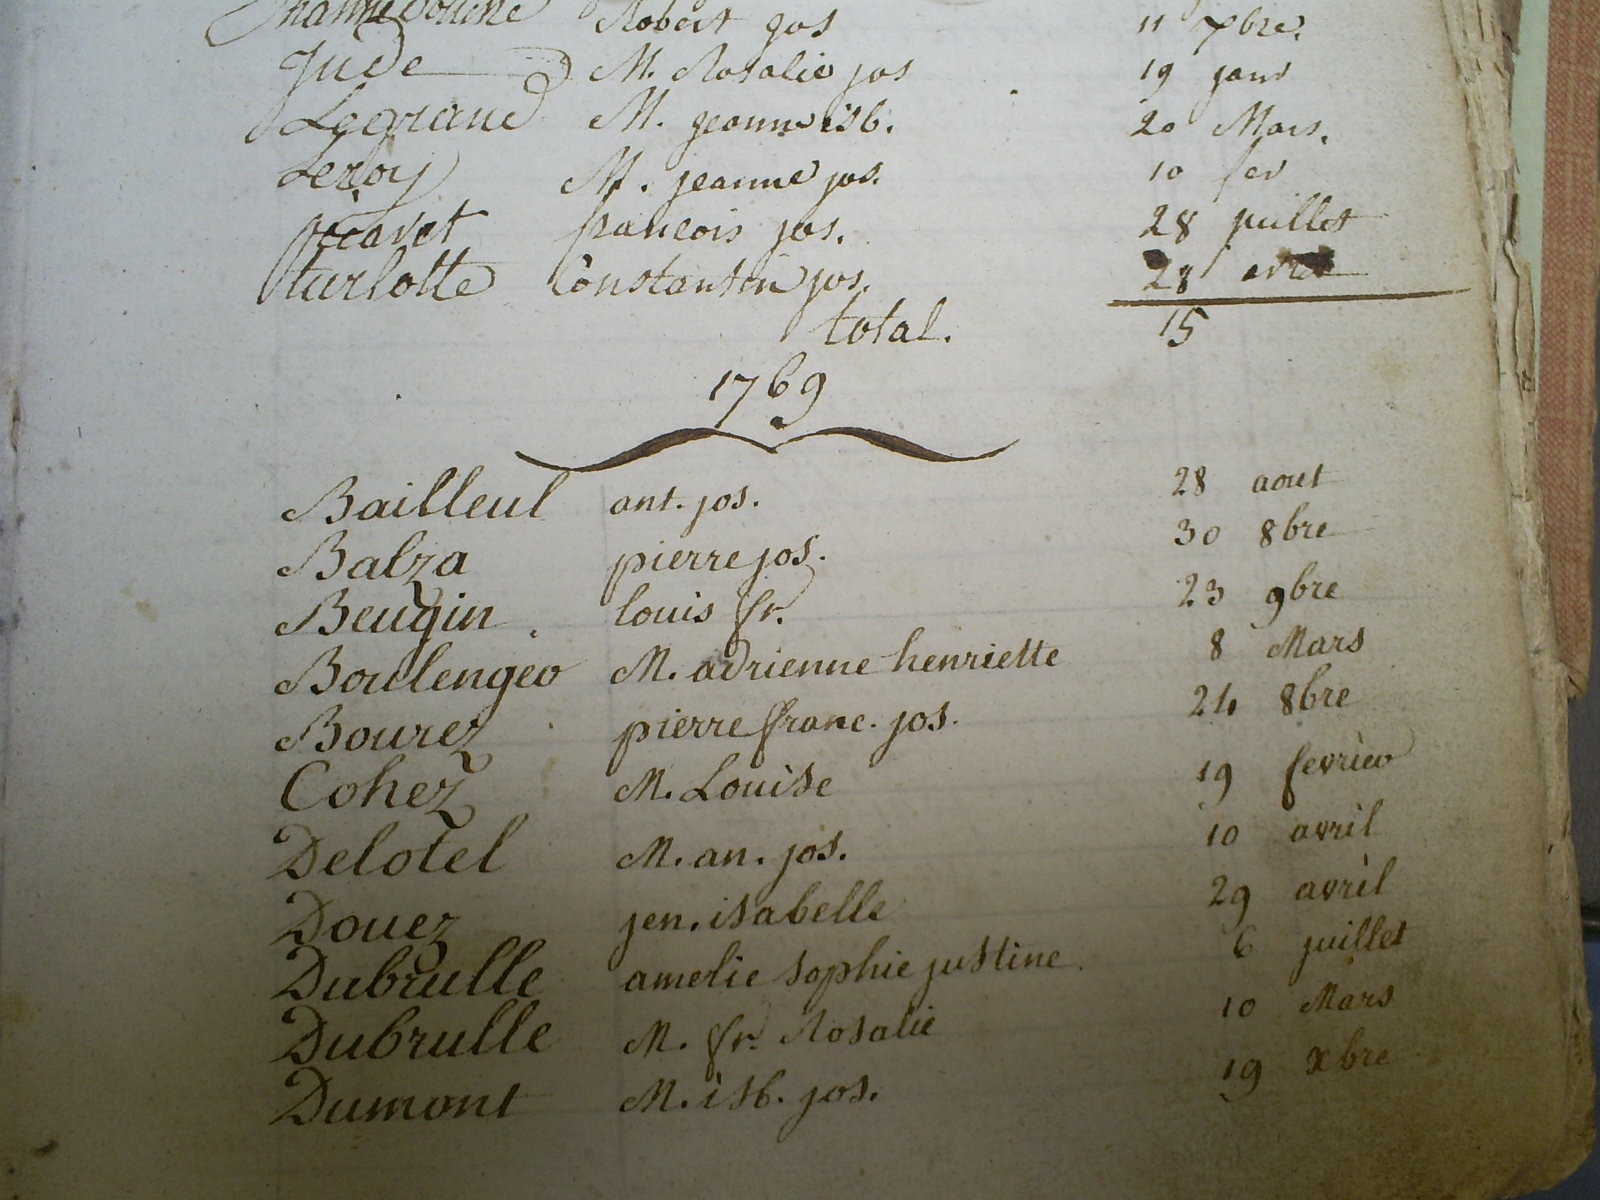 Robert jos 11 xbre.
Jude M. Rosalie jos 19 janv
Legrand M. jeanne isb. 20 Mars.
Leroy M. jeanne jos. 10 fev
picavet francois jos. 28 juillet
turlotte Constantin jos. 28 avril
total. 15
1769
Bailleul ant. jos. 28 aout
Balza pierre jos. 30 8bre
Beugin louis fr. 23 9bre
Boulenger M. adrienne henriette 8 Mars
Bourez pierre franc. jos. 24 8bre
Cohez M. Louise 19 fevrier
Delotel M. an. jos. 10 avril
Douez jen. isabelle 29 avril
Dubrulle amelie sophie justine 6 juillet
Dubrulle M. fr. Rosalie 10 Mars
Dumont M. isb. jos. 19 xbre